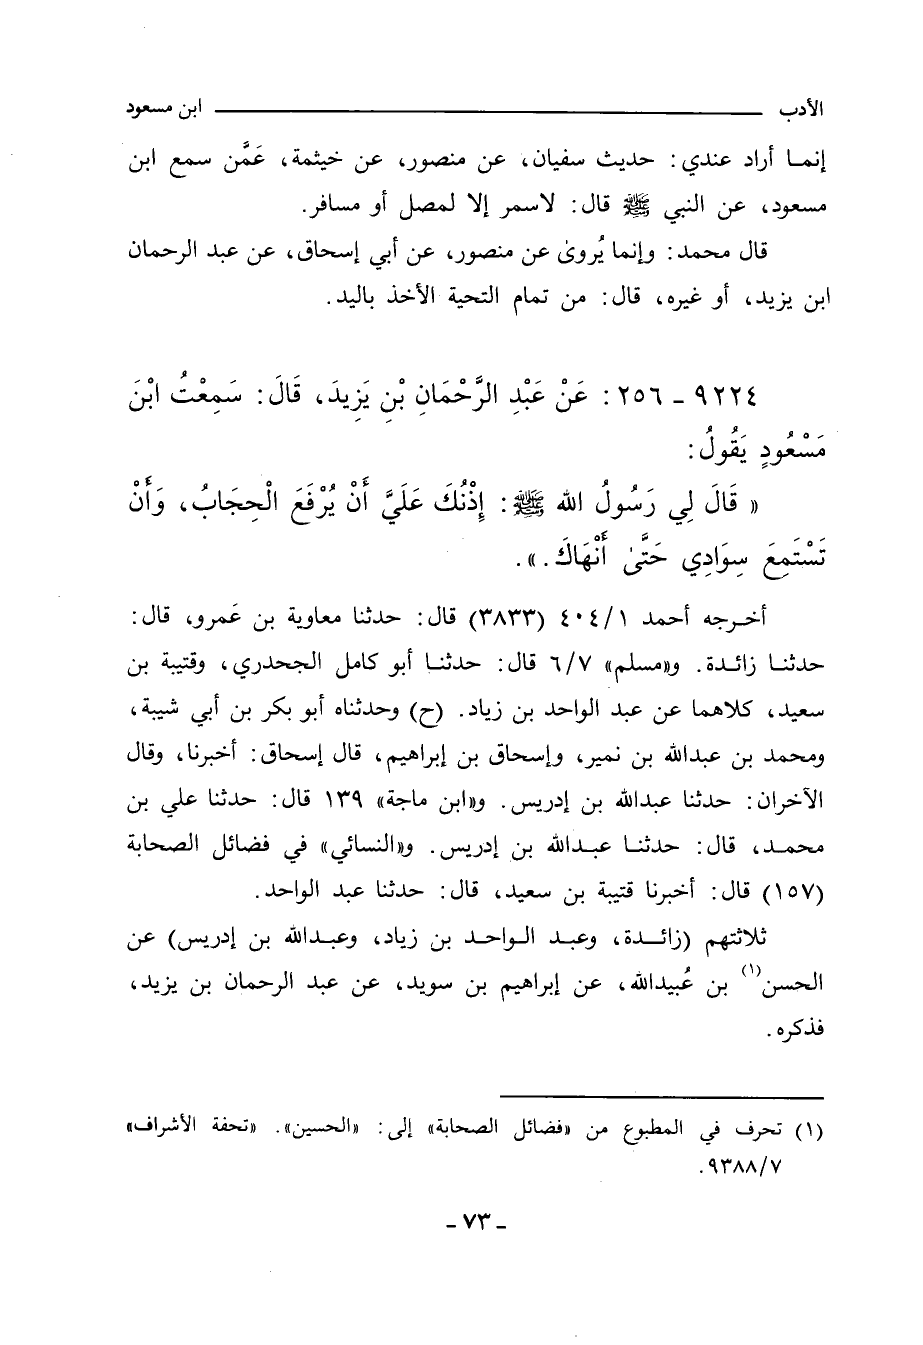 الأدب ـــــــــــــــــ ابن مسعود
إنمـا أراد عندي: حديث سفيان، عن منصور، عن خيثمة، عَمَّن سمع ابن
مسعود، عن النبي ﷺ قال: لاسمر إلا لمصل أو مسافر.
قال محمد: وإنما يُروىٰ عن منصور، عن أبي إسحاق، عن عبد الرحمان
ابن يزيد، أو غيره، قال: من تمام التحية الأخذ باليد.
٩٢٢٤ ـ ٢٥٦: عَنْ عَبْدِ الرَّحْمَانِ بْنِ يَزِيدَ، قَالَ: سَمِعْتُ ابْنَ
مَسْعُودٍ يَقُولُ:
« قَالَ لِي رَسُولُ الله ﷺ: إِذْنُكَ عَلَيَّ أَنْ يُرْفَعَ الْحِجَابُ، وَأَنْ
تَسْتَمِعَ سِوَادِي حَتَّىٰ أَنْهَاكَ.».
أخـرجه أحمد ٤٠٤/١ (٣٨٣٣) قال: حدثنا معاوية بن عَمرو، قال:
حدثنـا زائـدة. و«مسلم» ٦/٧ قال: حدثنـا أبو كامل الجحدري، وقتيبة بن
سعيد، كلاهما عن عبد الواحد بن زياد. (ح) وحدثناه أبو بكر بن أبي شيبة،
ومحمد بن عبدالله بن نمير، وإسحاق بن إبراهيم، قال إسحاق: أخبرنا، وقال
الآخران: حدثنا عبدالله بن إدريس. و«ابن ماجة» ١٣٩ قال: حدثنا علي بن
محمـد، قال: حدثنـا عبـدالله بن إدريس. و«النسائي» في فضائل الصحابة
(١٥٧) قال: أخبرنا قتيبة بن سعيد، قال: حدثنا عبد الواحد.
ثلاثتهم (زائـــدة، وعبـد الـواحـد بن زياد، وعبـدالله بن إدريس) عن
الحسن(١) بن عُبيدالله، عن إبراهيم بن سويد، عن عبد الرحمان بن يزيد،
فذكره.
(١) تحرف في المطبوع من «فضائل الصحابة» إلى: «الحسين». «تحفة الأشراف»
٩٣٨٨/٧.
ـ ٧٣ ـ